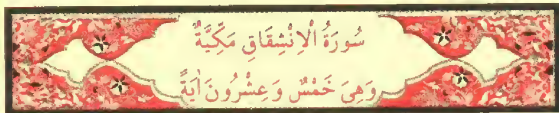 سُورَةُ الْاِنْشِقَاقِ مَكِّيَّةٌ
وَهِىَ خَمْسٌ وَعِشْرُونَ اٰيَةً